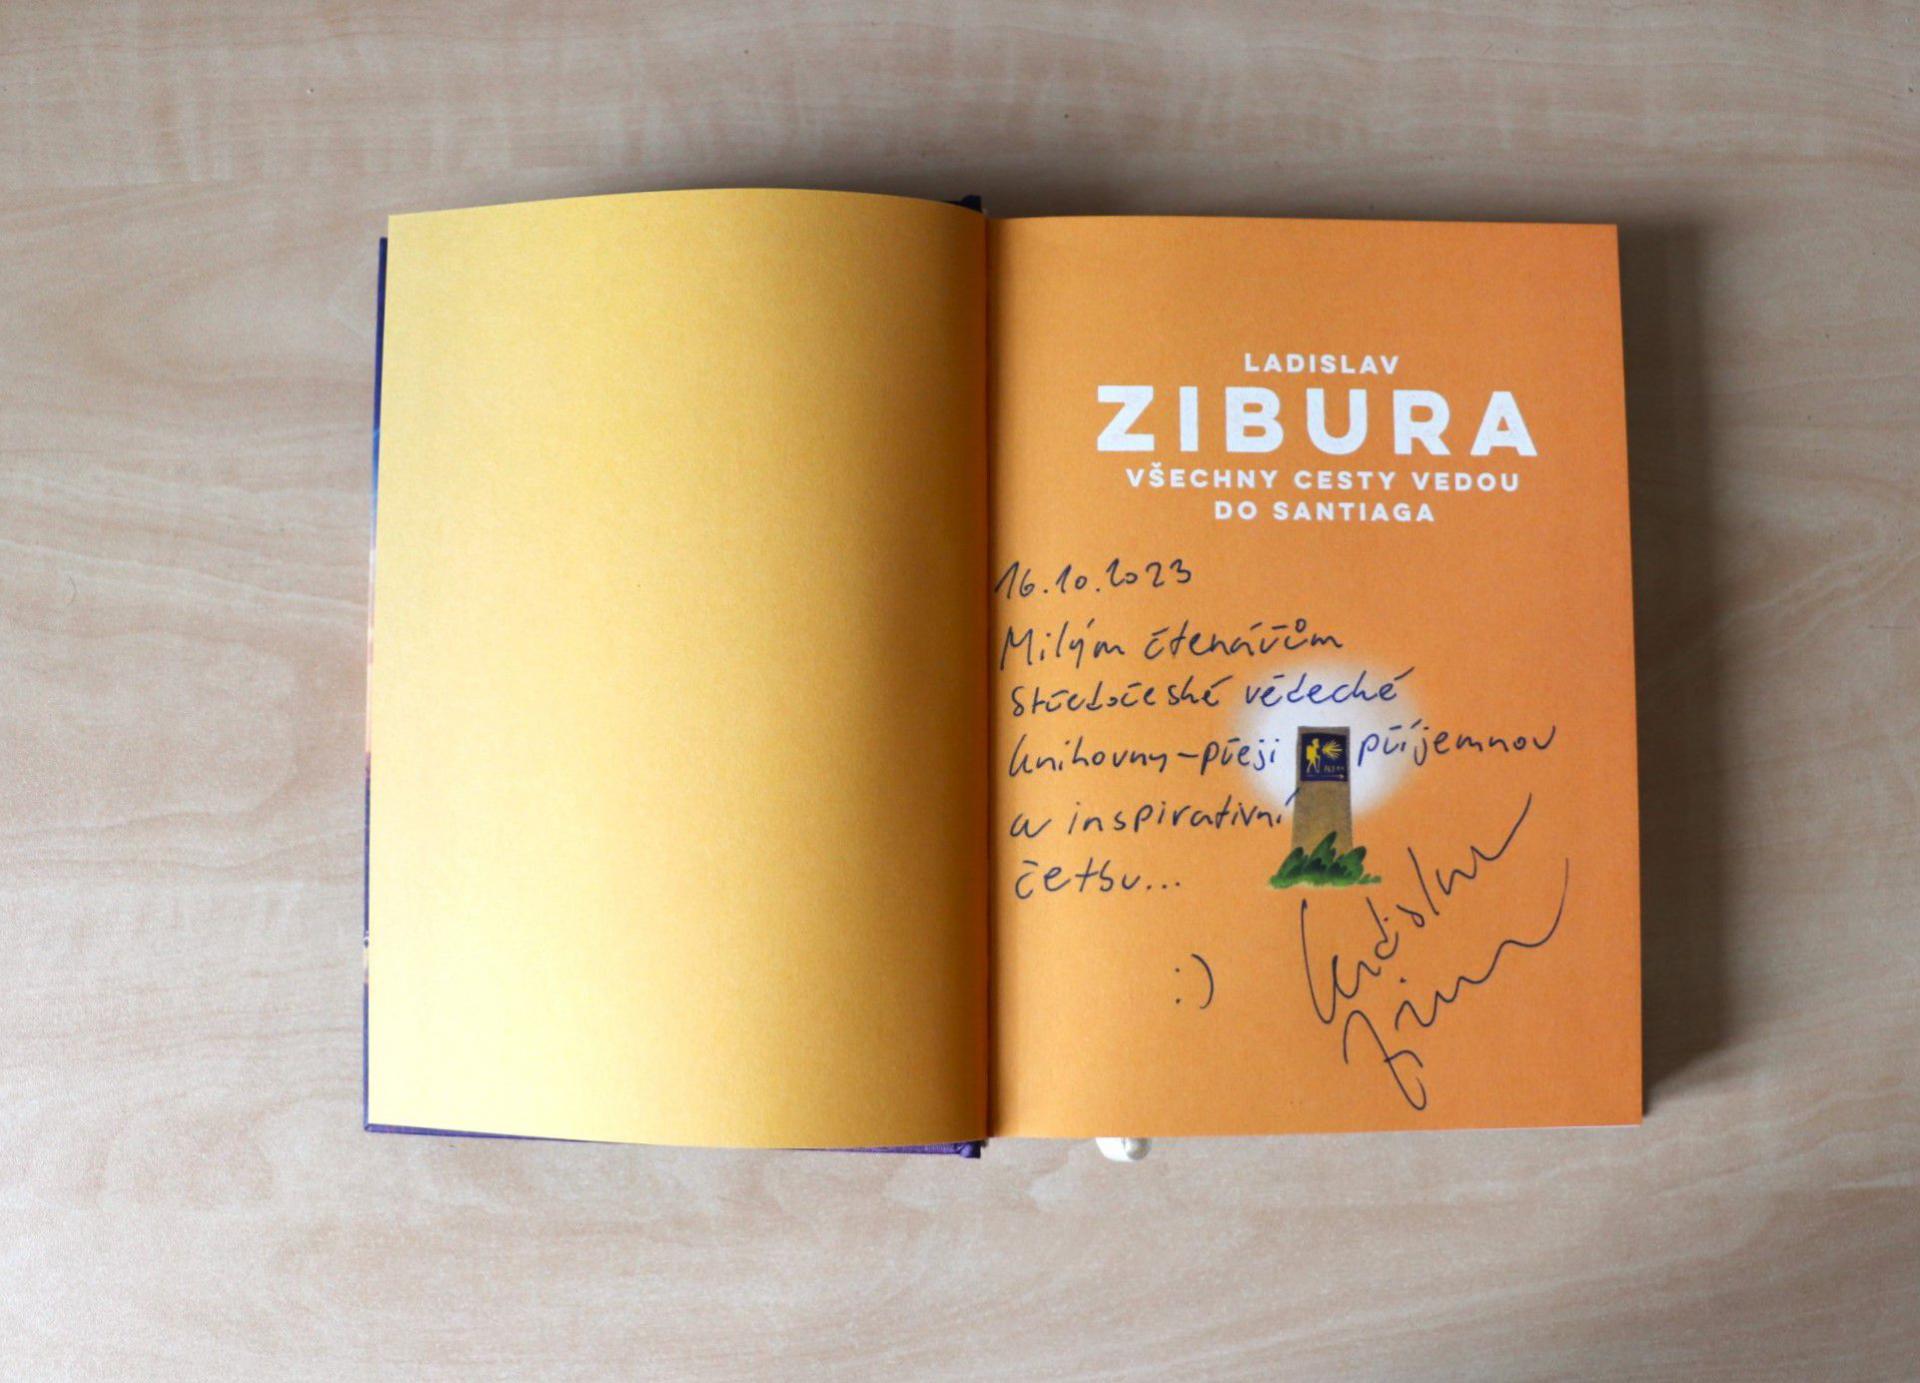 LADISLAV
ZIBURA
VŠECHNY CESTY VEDOU
DO SANTIAGA
16.10.2023
Milým čtenářům
Středočeské vědecké
knihovny - přeji příjemnou
a inspirativní
četbu...
:)
Ladislav
Zibura